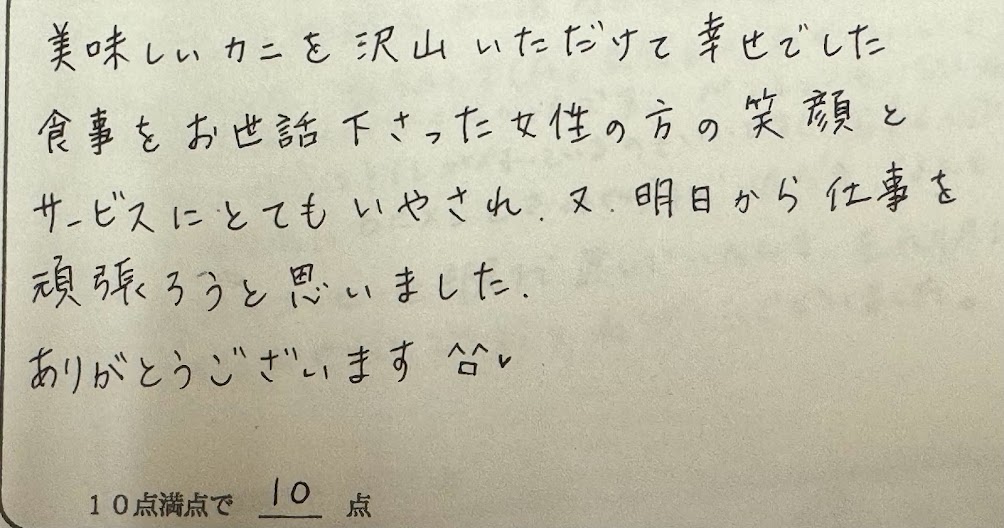 美味しいカニを沢山いただけて幸せでした
食事をお世話下さった女性の方の笑顔と
サービスにとてもいやされ、又、明日から仕事を
頑張ろうと思いました.
ありがとうございます ^□^
10点満点で 10 点